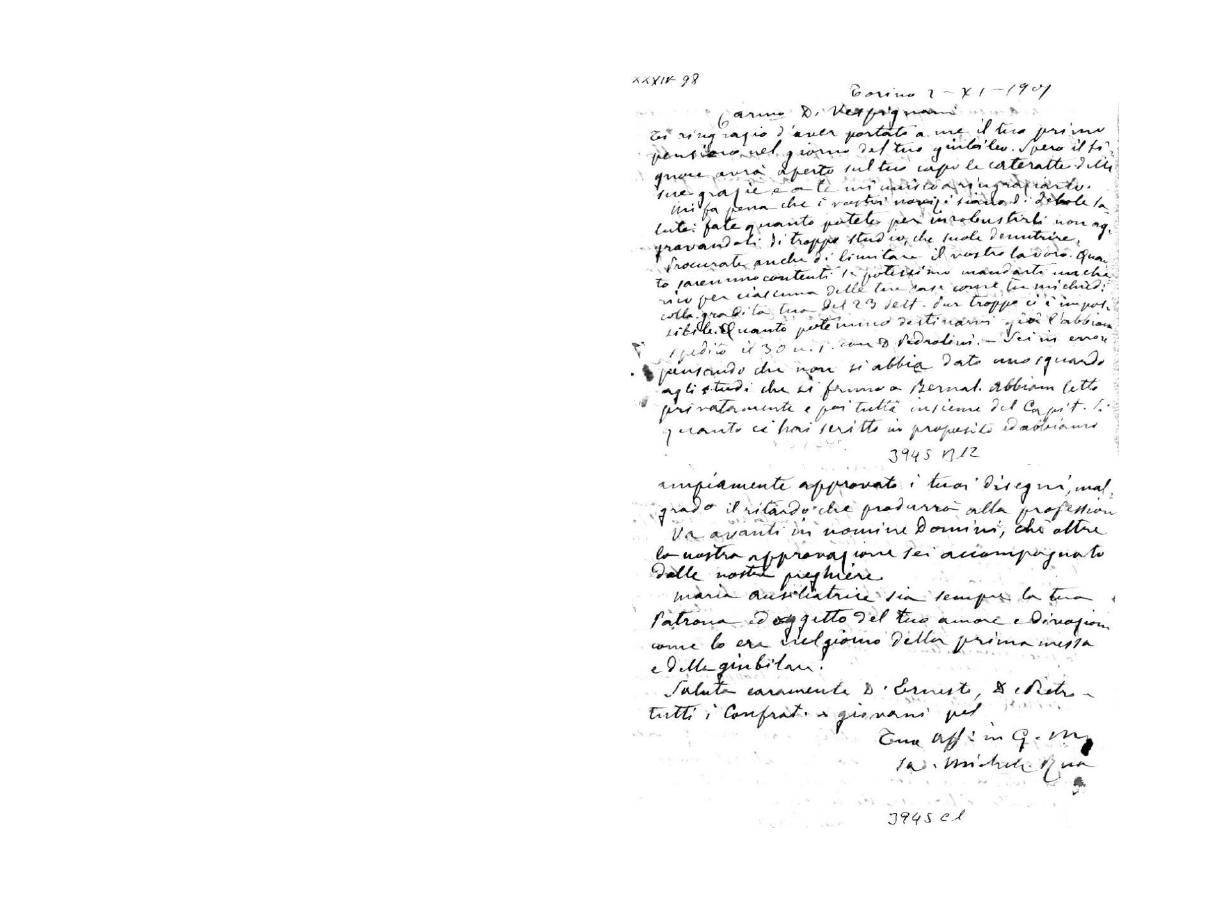 XXXIV 98
Torino 2-XI-1901
Carmo D. Vespignani
Ti ringrazio d'aver portato a me il tuo primo
pensiero nel giorno del tuo giubileo. Spero il Si-
gnore avrà aperto sul tuo capo le cateratte delle
sue grazie e a te mi unisco a ringraziarlo.
Mi fa pena che i vostri novizi siano di debole sa
lute: fate quanto potete per irrobustirli non ag-
gravandoli di troppo studio, che suole denutrire.
Procurate anche di limitare il vostro lavoro. Quan
to saremmo contenti se potessimo mandarti un che
rico per ciascuna delle tue case come tu mi chiedi
colla gradita tua del 23 Sett. Pur troppo ci è impos-
sibile. Quanto potemmo destinarvi già l'abbiam
spedito il 30 con D Pedrolini. - Sei in errore
pensando che non si abbia dato uno sguardo
agli studi che si fanno a Bernal. Abbiam letto
privatamente e poi tutti insieme del Capit. S.
quanto ci hai scritto in proposito ed abbiamo
3945 B12
ampiamente approvato i tuoi disegni, mal-
grado il ritardo che produrrà alla profession
Va avanti in nomine Domini, chè oltre
la nostra approvazione sei accompagnato
dalle nostre preghiere.
Maria Ausiliatrice sia sempre la tua
Patrona ed oggetto del tuo amore e divozion
come lo era nel giorno della prima messa
e della giubilare.
Saluta caramente D. Ernesto, D. Pietro
tutti i Confrat. e giovani pel
Tuo Aff. in G. M.
Sa. Michele Rua
3945 C1